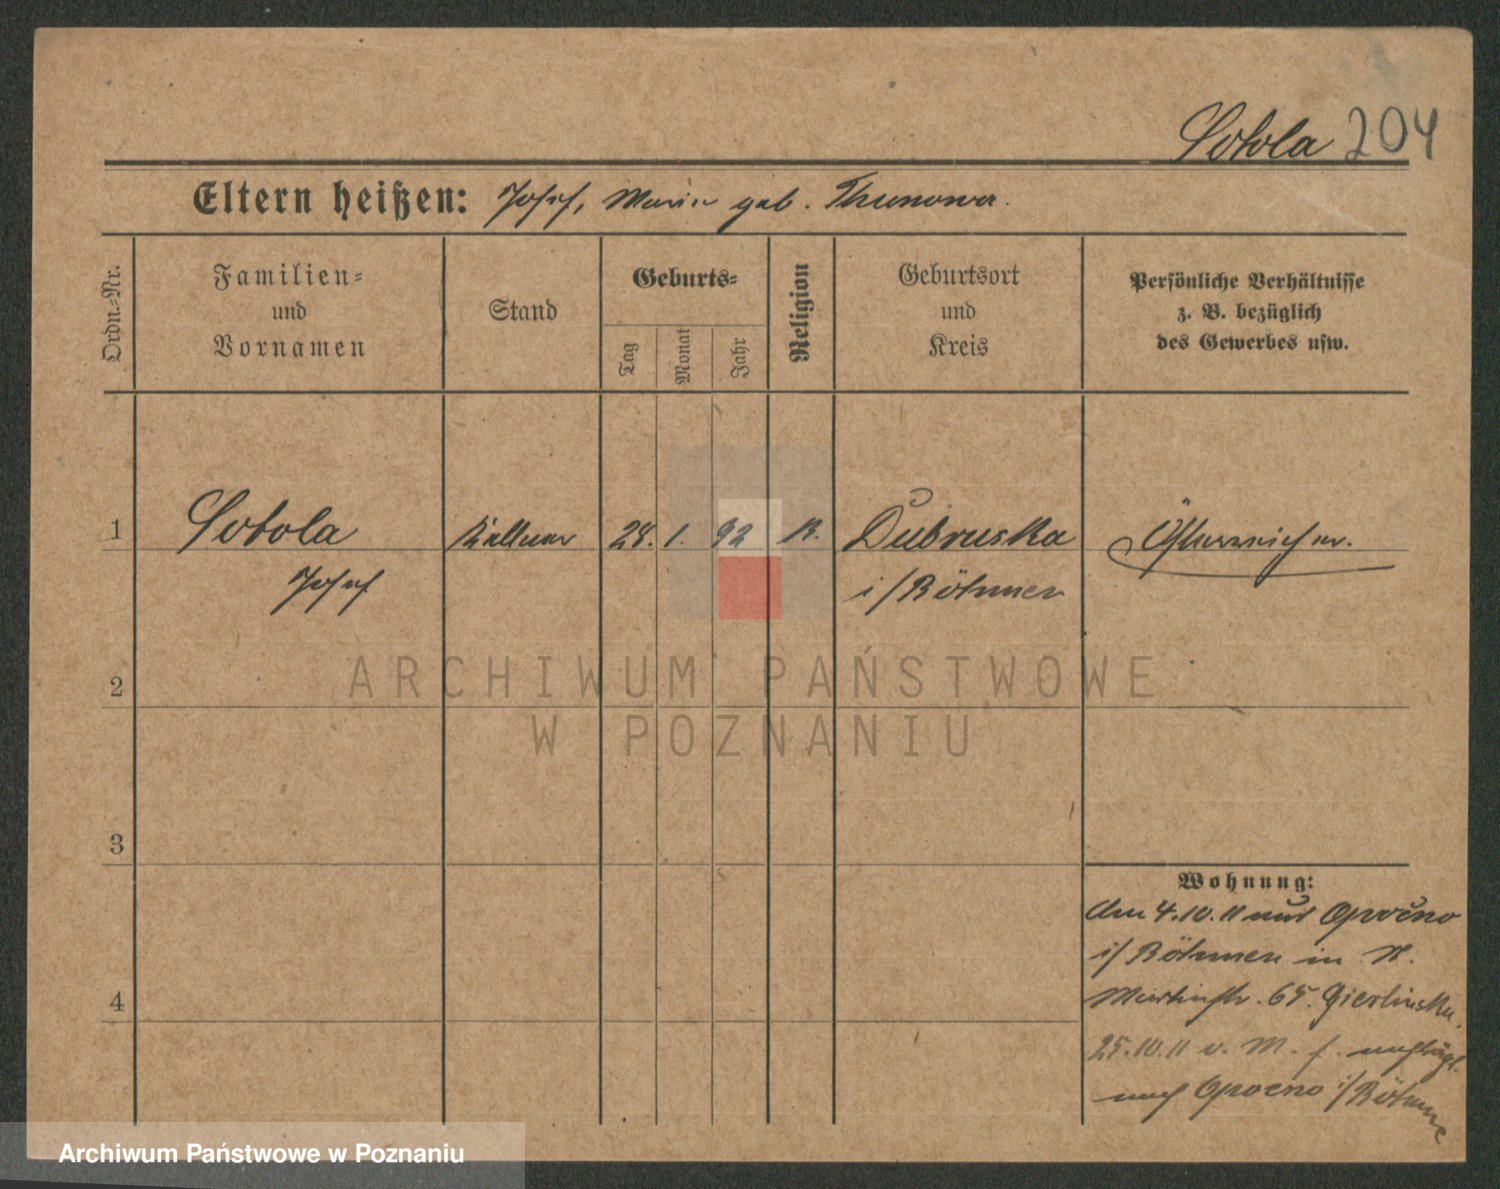 Sobola 204
Eltern heißen: Josef, Marie geb. Thumowa.
Ordn.-Nr.
Familien-
und
Vornamen
Stand
Geburts-
Tag
Monat
Jahr
Religion
Geburtsort
und
Kreis
Persönliche Verhältnisse
z. B. bezüglich
des Gewerbes usw.
1 Sobola Kellner 28. 1. 92 K. Dubruska Österreicher.
Josef i/Böhmen
2
3
4
Wohnung:
Am 4.10.11 aus Opočno
i/Böhmen in St.
Martinstr. 65. Gierlinska.
25.10.11 v. M. f.
nach Opocno i/Böhme
ARCHIWUM PAŃSTWOWE
W POZNANIU
Archiwum Państwowe w Poznaniu